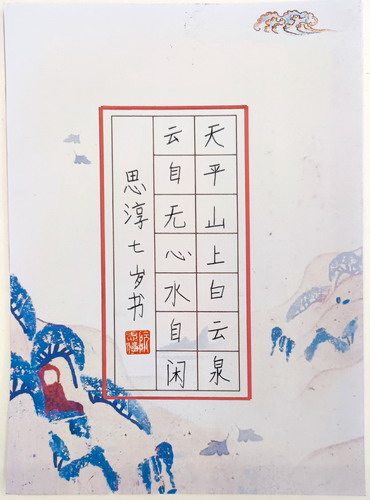 天平山上白云泉
云自无心水自闲
思淳七岁书